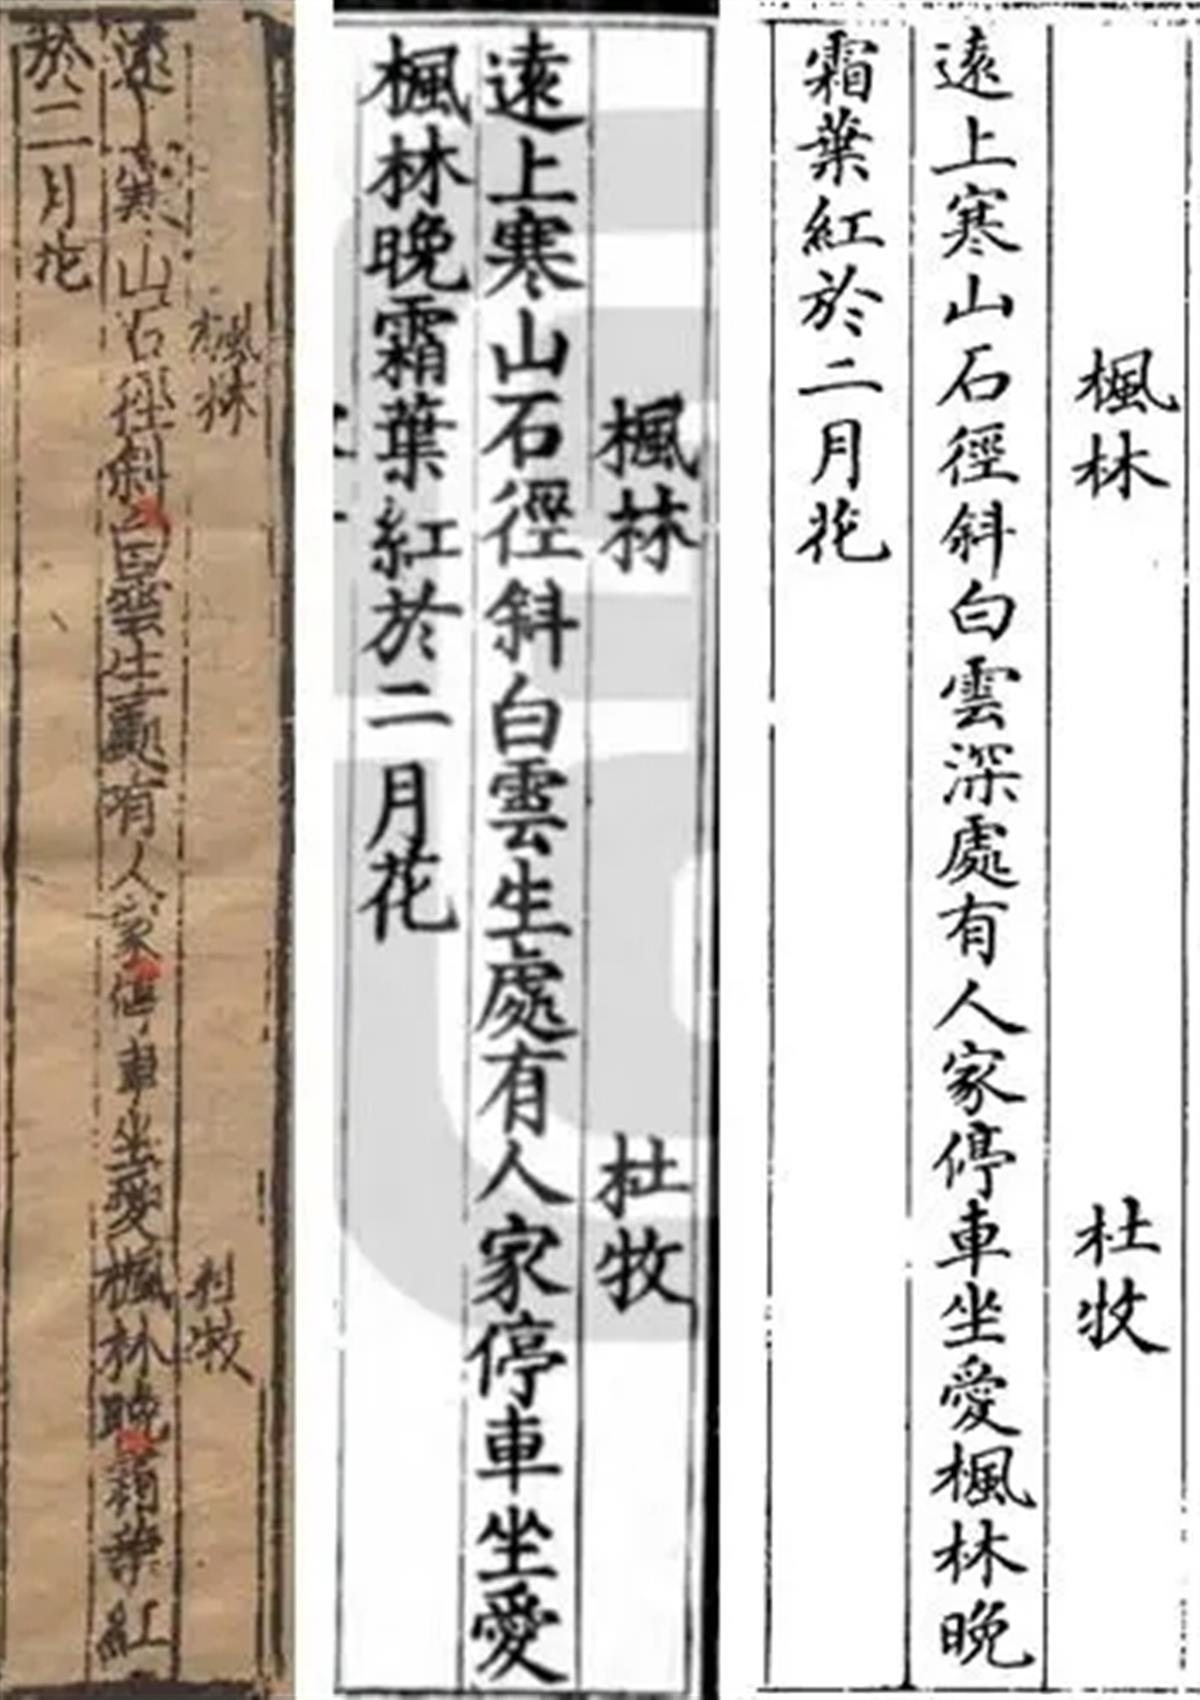 楓林 杜牧
遠上寒山石徑斜白雲生處有人家停車坐愛楓林晚霜葉紅
於二月花
楓林 杜牧
遠上寒山石徑斜白雲生處有人家停車坐愛
楓林晚霜葉紅於二月花
楓林 杜牧
遠上寒山石徑斜白雲深處有人家停車坐愛楓林晚
霜葉紅於二月花